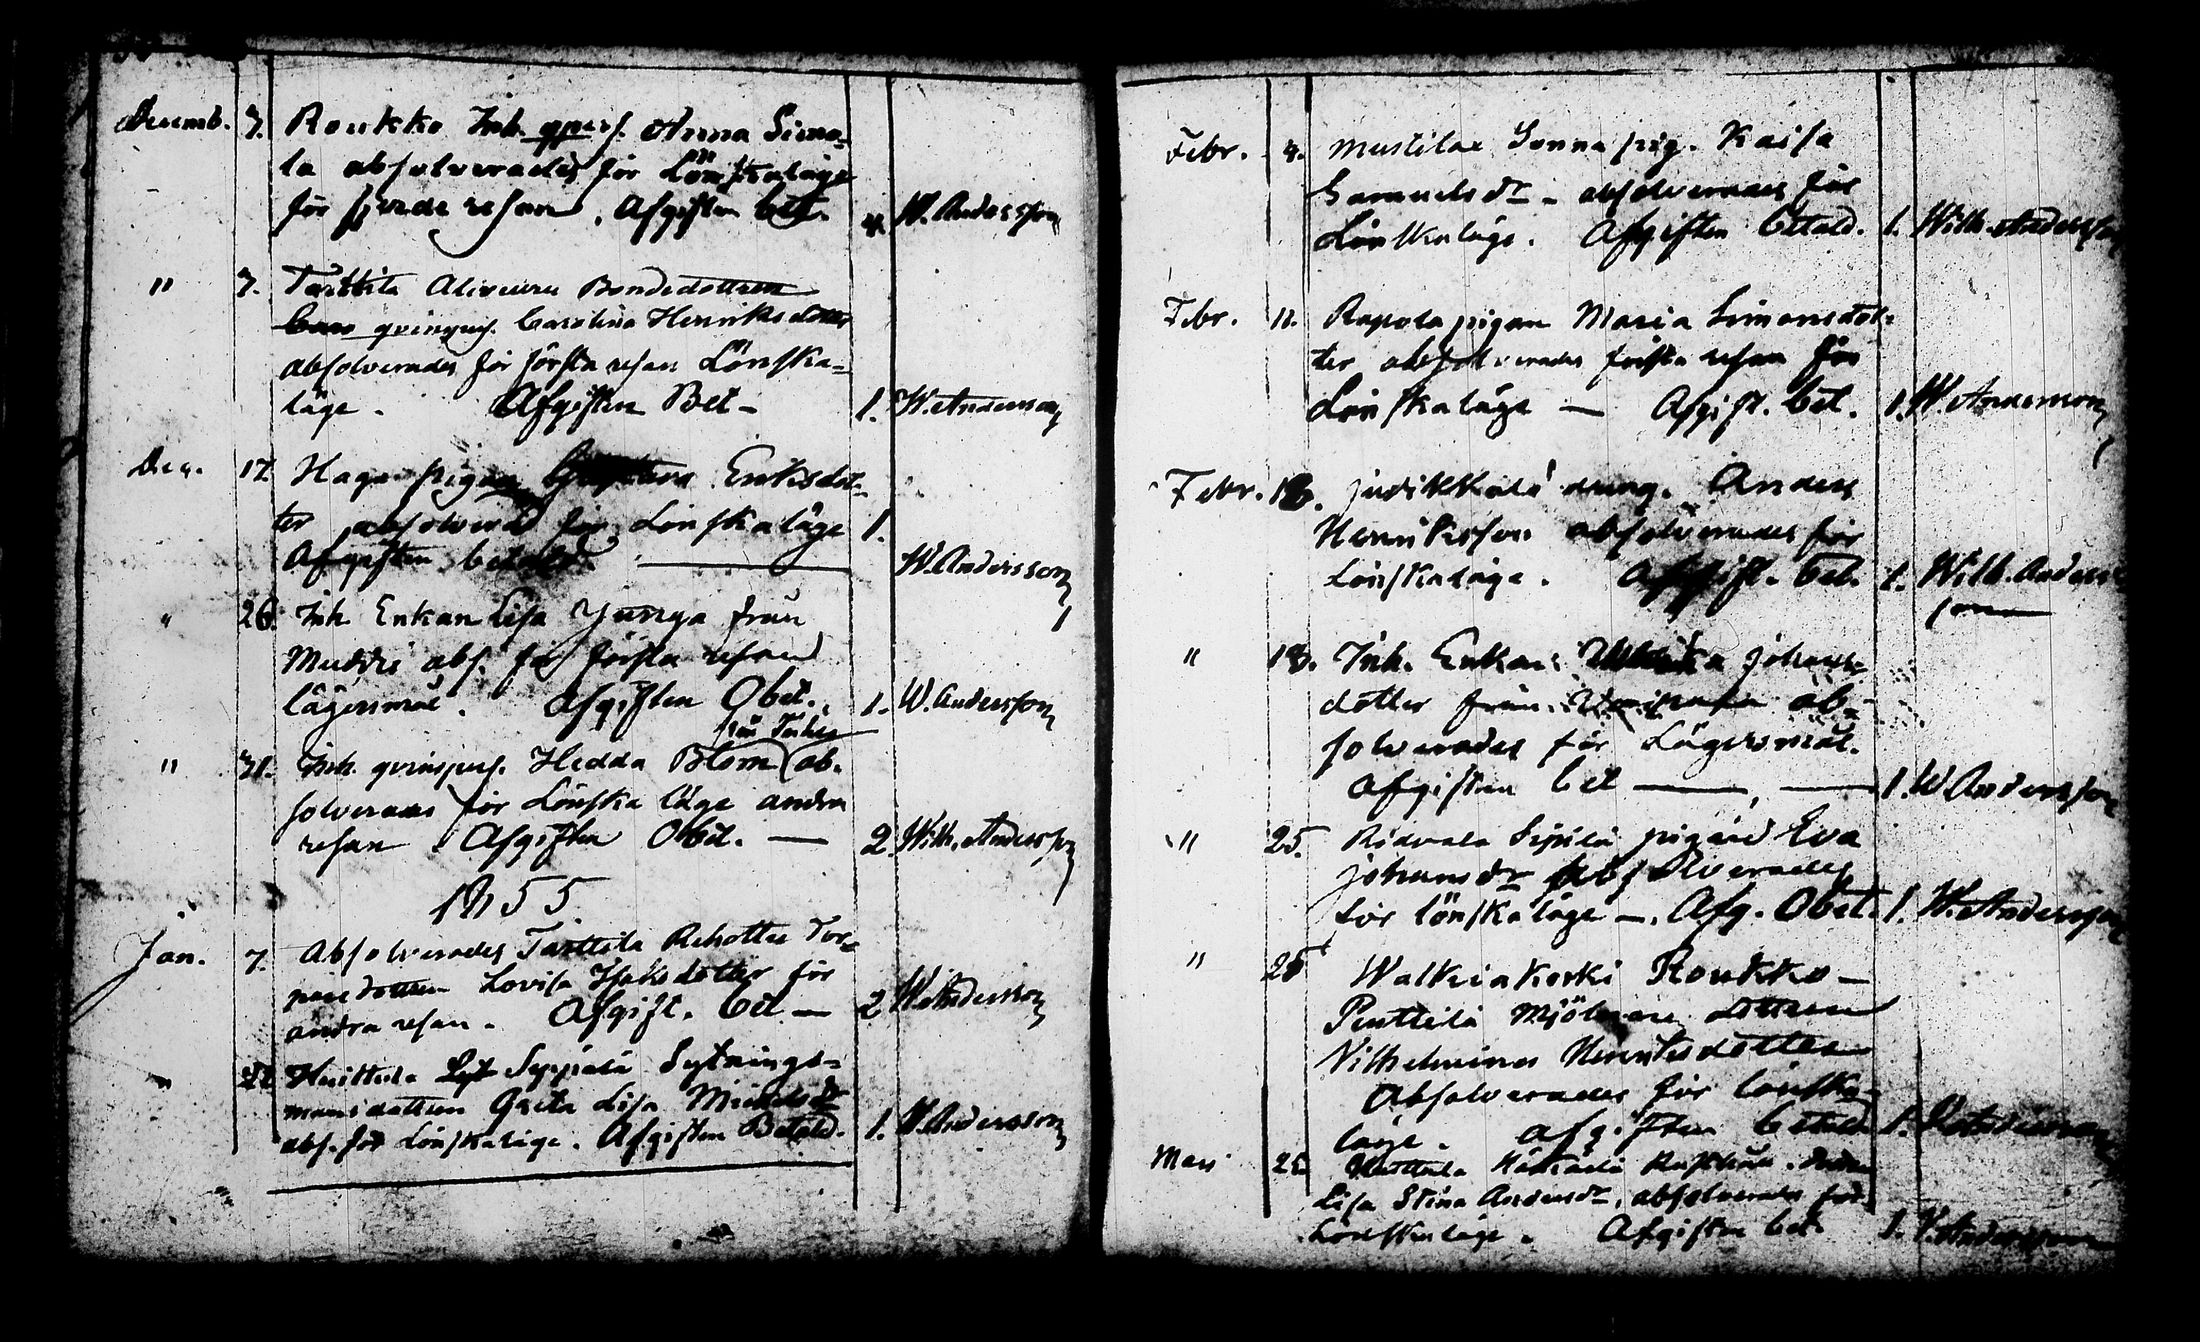 Decemb. 7. Roukko Inh. qpers. Anna Simo-
la absolverades för Lönskaläge
för fjerde resan. Afgiften bet. 4 W. Andersson
" 7. Tarttila Bondedottren
Caro qvinspers. Carolina Henriksdotter
absolverades för första resan Lönska-
läge. Afgiften Bet - 1. W. Andersson
Dec. 17. Haga pigan Eriksdot-
ter absolverd för Lönskaläge 1.
Afgiften betald. W. Andersson
" 26. Inh. Enkan Lisa från
abs. för första resan
lägersmål. Afgiften Obet. 1. W. Andersson
från
" 31. Inh. qvinspers. Hedda Blom ab-
solverades för Lönska läge andra
resan. Afgiften Obet. — 2. Wilh. Andersson
1855
Jan. 7. Absolverades Tarttila Tor-
paredottren Lovisa Isaksdotter för
andra resan. Afgift. bet — 2 W. Andersson
" Huittula Seppälä Sytnings-
mansdottren Greta Lisa Michelsdr
abs. för Lönskaläge. Afgiften Betald. 1. W. Andersson
Febr. 4. Mustilae Sonna pig. Kaisa
Samuelsdr - absolverades för
Lönskaläge. Afgiften betald. 1. Wilh. Andersson
Febr. 11. Rapola pigan Maria Simonsdot-
ter absolverades första resan för
Lönskaläge — Afgift. bet. 1. W. Andersson
Febr. 18. Judikkala dräng. Anders
Henriksson absolverades för
Lönskaläge. Afgift. bet. 1. Wilh. Anders-
son
" 18. Inh. Enkan Johans-
dotter från ab-
solverades för Lägersmål.
Afgiften bet — 1. W Andersson
" 25. Ridvala Sipilä pigan Eva
Johansdr absolverades
för lönskaläge —. Afg. Obet. 1. W. Andersson
" 25 Walkiakoski Roukko-
Penttilä Mjölnare dottren
Vilhelmina Henriksdotter
Absolverades för lönska-
läge. Afgiften betald 1. W. Andersson
Mars 25 Huittula
Lisa Stina Andersdr, absolverades för
Lönskaläge. Afgiften bet. 1. W. Andersson